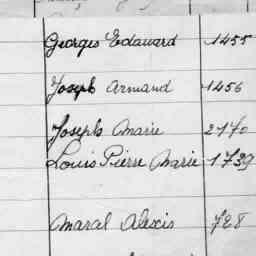 Georges Edouard 1455
Joseph Armand 1456
Joseph Marie 2170
Louis Pierre Marie 1739
Maral Alexis 728